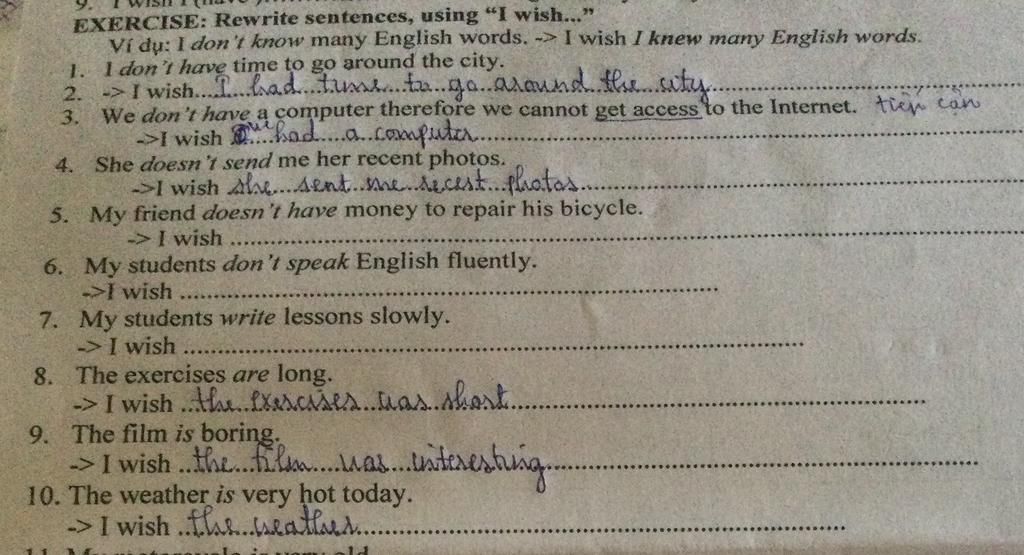 9. I wish I (have
EXERCISE: Rewrite sentences, using “I wish...”
Ví dụ: I don't know many English words. -> I wish I knew many English words.
1. I don't have time to go around the city.
2. -> I wish...I had time to go around the city
3. We don't have a computer therefore we cannot get access to the Internet. tiếp cận
->I wish we had a computer
4. She doesn't send me her recent photos.
->I wish she sent me recest photos
5. My friend doesn't have money to repair his bicycle.
-> I wish
6. My students don't speak English fluently.
->I wish
7. My students write lessons slowly.
-> I wish
8. The exercises are long.
-> I wish the exercises was short
9. The film is boring.
-> I wish the film was interesting
10. The weather is very hot today.
-> I wish the weather
11. My motorcycle is very old